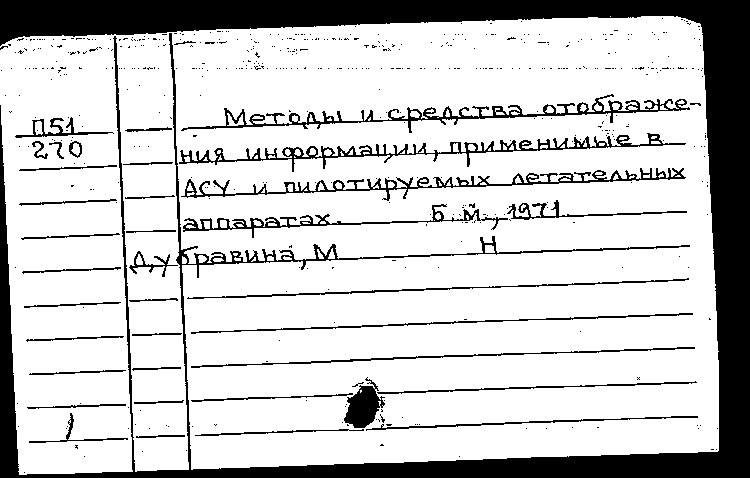 Методы и средства отображе-
П51
270
ния информации, применимые в
АСУ и пилотируемых летательных
аппаратах. Б. м., 1971.
Дубравина, М Н